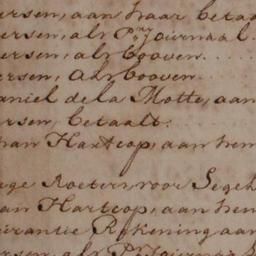 ersen, aan haar betaa
ersen, als P.r Journaal.
ersen, als booven
ersen, als booven
aniel de la Motte, aan
rsen, betaalt.
han Hartcop, aan hem
ege Roeters, voor Segeh
an Hartcop, aan hem
urantie Rekening aan
ersen, als P.r Journaal